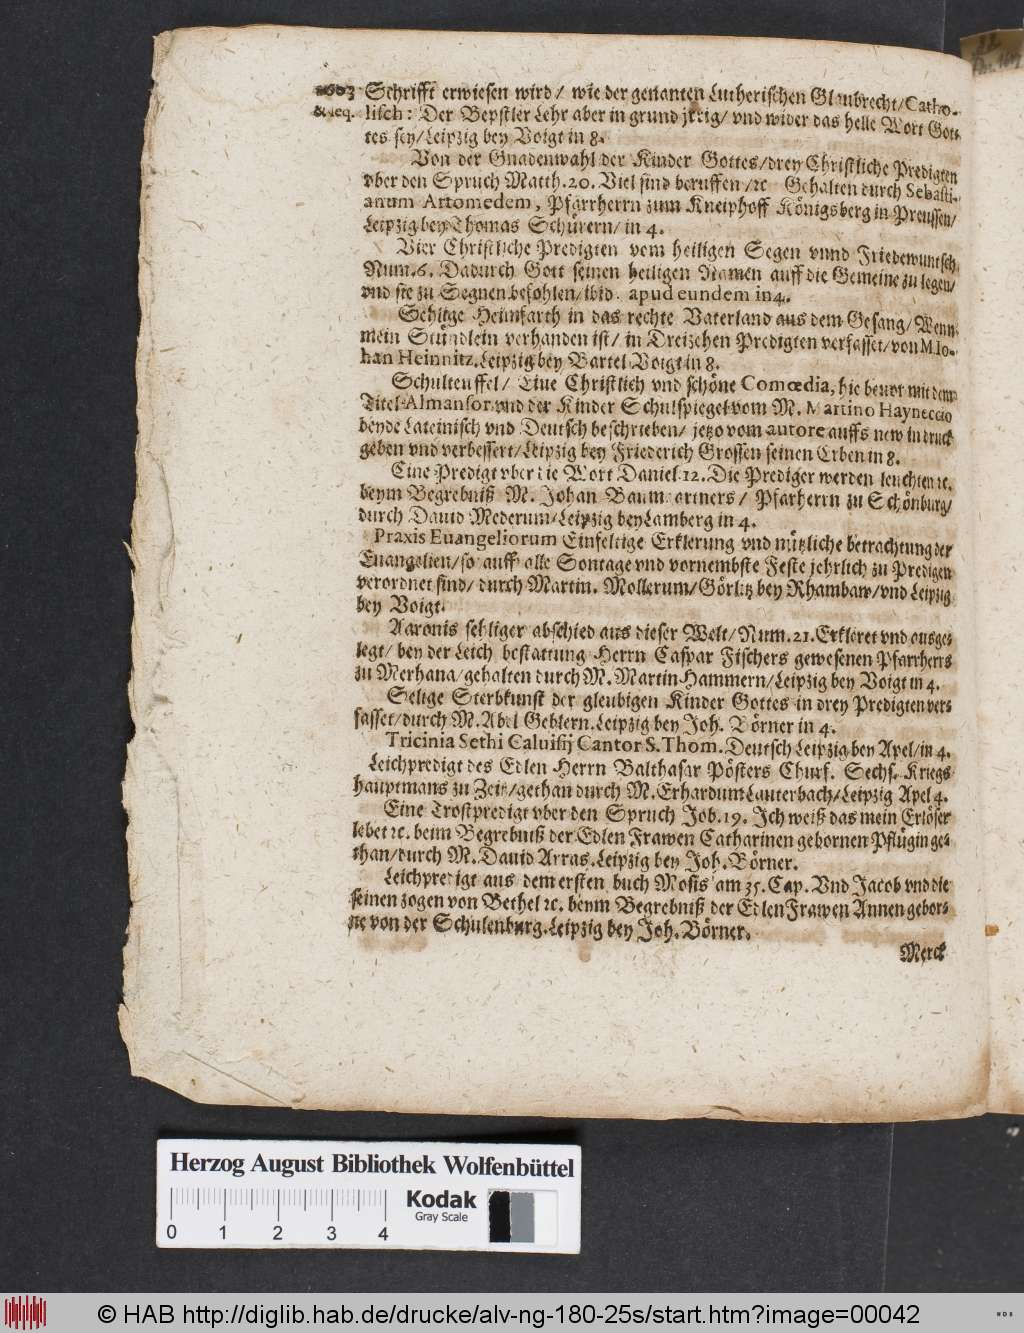 1603 Schrifft erwiesen wird/ wie der genanten Lutherischen Glaubrecht/Catho-
& seq. lisch: Der Bepstler Lehr aber in grund jrrig/ vnd wider das helle Wort Got-
tes sey/Leipzig bey Voigt in 8.
Von der Gnadenwahl der Kinder Gottes/drey Christliche Predigten
vber den Spruch Matth.20. Viel sind beruffen/ꝛc Gehalten durch Sebasti-
anum Artomedem, Pfarrherrn zum Kneiphoff Königsberg in Preussen/
Leipzig bey Thomas Schürern/ in 4.
Vier Christliche Predigten vom heiligen Segen vnnd Friedewuntsch
Num.6. Dadurch Gott seinen heiligen Namen auff die Gemeine zu legen/
vnd sie zu Segnen befohlen/ibid. apud eundem in 4.
Sehlige Heimfarth in das rechte Vaterland aus dem Gesang/ Wenn
mein Stündlein verhanden ist/ in Dreizehen Predigten verfasset/von M.Jo-
han Heinnitz.Leipzig bey Bartel Voigt in 8.
Schulteuffel/ Eine Christlich vnd schöne Comœdia, hie beuor mit dem
Titel Almansor vnd der Kinder Schulspiegel vom M. Martino Hayneccio
beyde Lateinisch vnd Deutsch beschrieben/ jetzo vom autore auffs new in druck
geben vnd verbessert/Leipzig bey Friederich Grossen seinen Erben in 8.
Eine Predigt vber die Wort Daniel.12. Die Prediger werden leuchten ꝛc.
beym Begrebniß M. Johan Baumgartners/ Pfarherrn zu Schönburg/
durch Dauid Mederum/Leipzig bey Lamberg in 4.
Praxis Euangeliorum Einfeltige Erklerung vnd nützliche betrachtung der
Euangelien/so auff alle Sontage vnd vornembste Feste jehrlich zu Predigen
verordnet sind/ durch Martin. Mollerum/Görlitz bey Rhambaw/vnd Leipzig
bey Voigt.
Aaronis sehliger abschied aus dieser Welt/Num.21.Erkleret vnd ausge-
legt/ bey der Leich bestattung Herrn Caspar Fischers gewesenen Pfarrherrs
zu Merhana/gehalten durch M. Martin Hammern/Leipzig bey Voigt in 4.
Selige Sterbkunst der gleubigen Kinder Gottes in drey Predigten ver-
fasset/durch M. Abel Geblern.Leipzig bey Joh. Börner in 4.
Tricinia Sethi Caluisij Cantor S.Thom. Deutsch Leipzig bey Apel/in 4.
Leichpredigt des Edlen Herrn Balthasar Pösters Churf. Sechs. Kriegs-
hauptmans zu Zeitz/gethan durch M. Erhardum Lauterbach/Leipzig Apel 4.
Eine Trostpredigt vber den Spruch Job.19. Ich weiß das mein Erlöser
lebet ꝛc. beim Begrebniß der Edlen Frawen Catharinen gebornen Pflügin ge-
than/durch M. Dauid Arras.Leipzig bey Joh. Börner.
Leichpredigt aus dem ersten buch Mosis am 35. Cap. Vnd Jacob vnd die
seinen zogen von Bethel ꝛc. beym Begrebniß der Edlen Frawen Annen gebor-
ne von der Schulenburg.Leipzig bey Joh. Börner.
Merck
Herzog August Bibliothek Wolfenbüttel
0 1 2 3 4
Kodak
Gray Scale
© HAB http://diglib.hab.de/drucke/alv-ng-180-25s/start.htm?image=00042